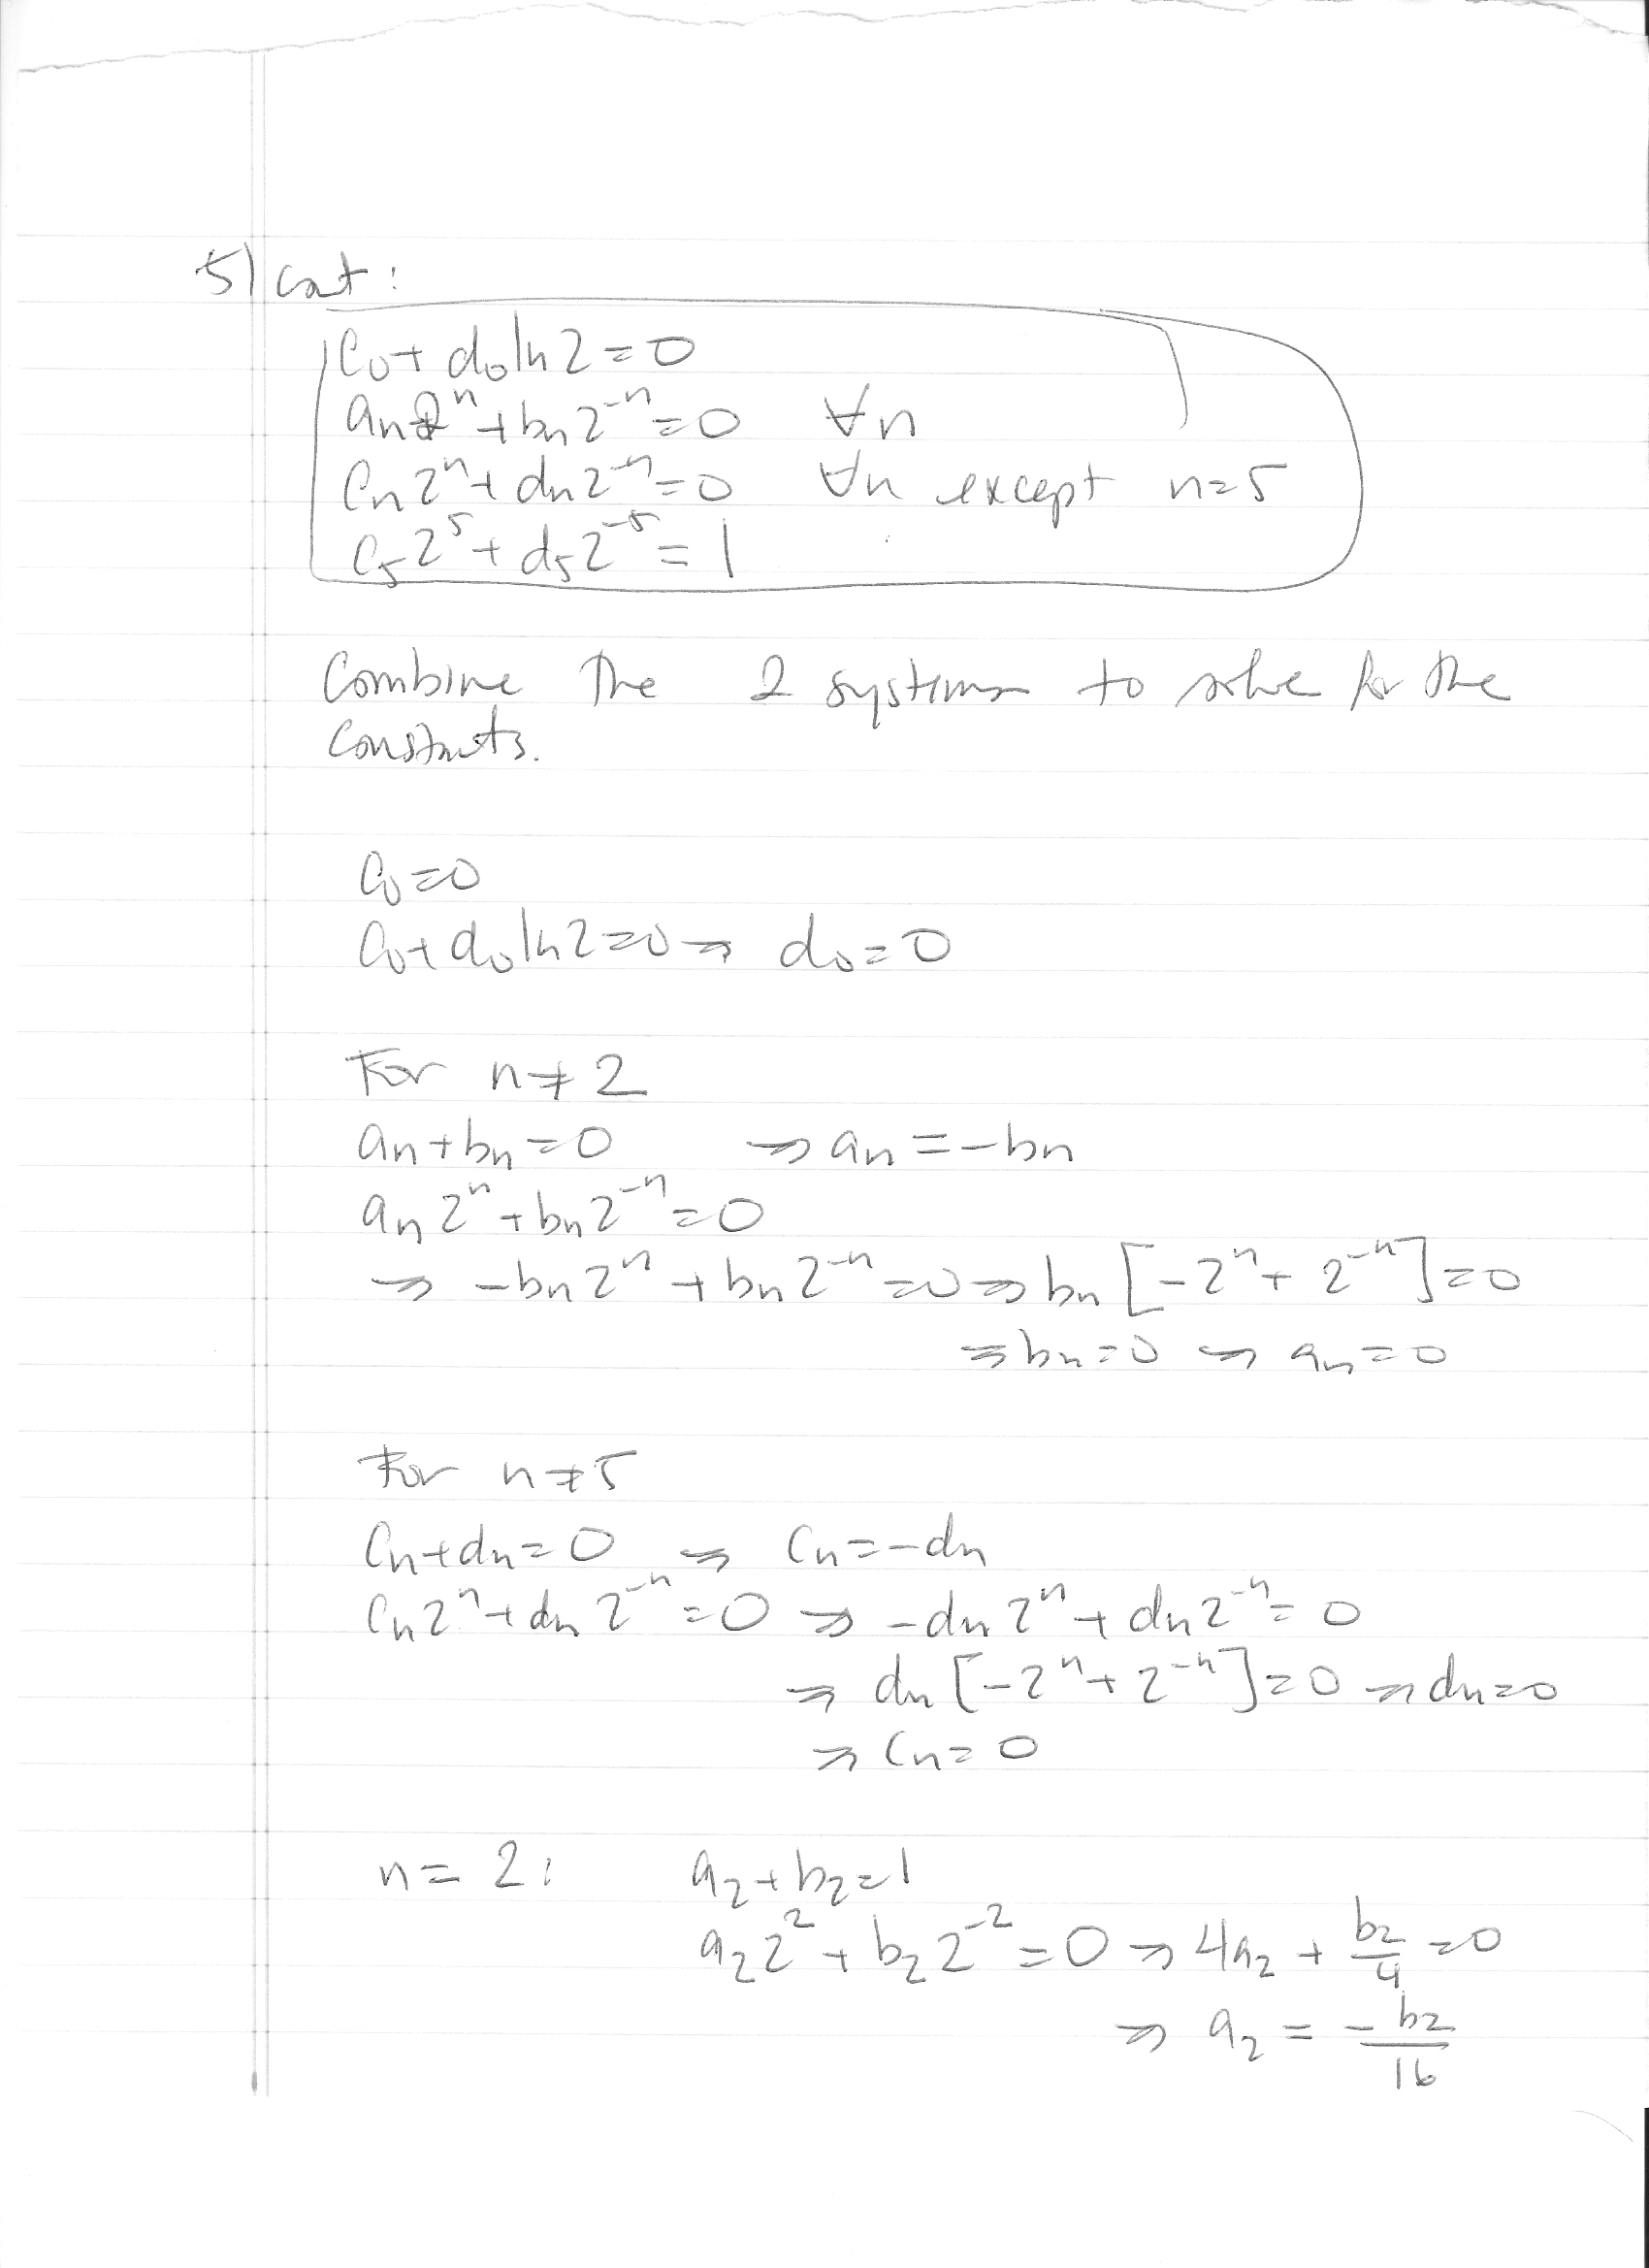 5) cont:
c₀ + d₀ ln 2 = 0
aₙ2ⁿ + bₙ2⁻ⁿ = 0 ∀n
cₙ2ⁿ + dₙ2⁻ⁿ = 0 ∀n except n=5
c₅2⁵ + d₅2⁻⁵ = 1
Combine the 2 systems to solve for the
constants.
c₀ = 0
c₀ + d₀ ln 2 = 0 ⇒ d₀ = 0
For n ≠ 2
aₙ + bₙ = 0 ⇒ aₙ = -bₙ
aₙ2ⁿ + bₙ2⁻ⁿ = 0
⇒ -bₙ2ⁿ + bₙ2⁻ⁿ = 0 ⇒ bₙ[-2ⁿ + 2⁻ⁿ] = 0
⇒ bₙ = 0 ⇒ aₙ = 0
For n ≠ 5
cₙ + dₙ = 0 ⇒ cₙ = -dₙ
cₙ2ⁿ + dₙ2⁻ⁿ = 0 ⇒ -dₙ2ⁿ + dₙ2⁻ⁿ = 0
⇒ dₙ[-2ⁿ + 2⁻ⁿ] = 0 ⇒ dₙ = 0
⇒ cₙ = 0
n = 2: a₂ + b₂ = 1
a₂2² + b₂2⁻² = 0 ⇒ 4a₂ + b₂/4 = 0
⇒ a₂ = -b₂/16